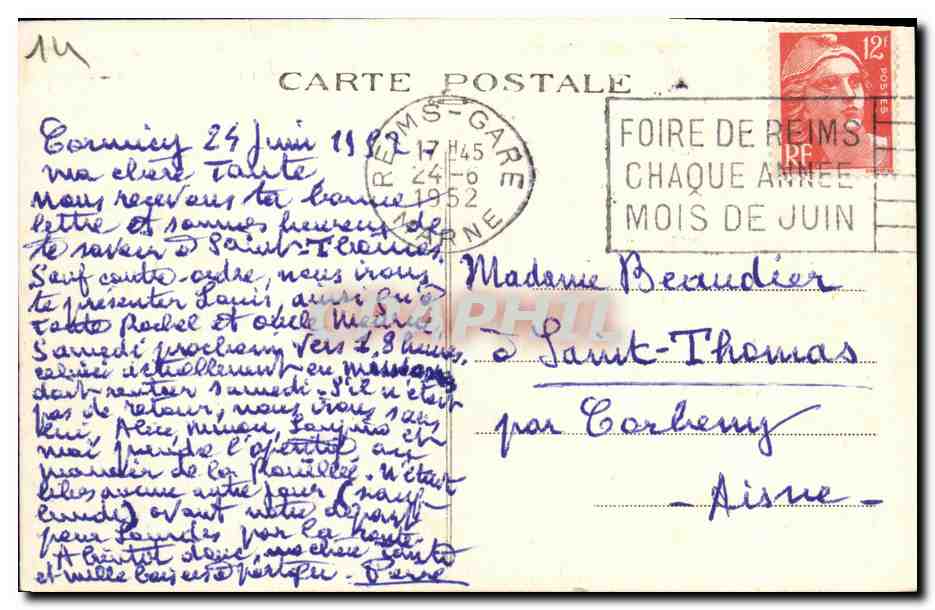 14
CARTE POSTALE
12F
POSTES
RF
REIMS-GARE
17H45
24-6
1952
MARNE
FOIRE DE REIMS
CHAQUE ANNÉE
MOIS DE JUIN
Cormicy 24 Juin 1952 -
ma chère Tante
nous recevons ta bonne
lettre et sommes heureux de
te savoir à Saint-Thomas.
Sauf contre-ordre, nous irons
te présenter Louis, ainsi qu'à
Tante Rachel et oncle
Samedi prochain, vers 18 heures.
actuellement en
doit rentrer samedi. S'il n'était
pas de retour, nous irons sans
lui, Alice, et
moi prendre l'apéritif au
manoir de la . N'étant
libres aucun autre jour (sauf
lundi) avant notre départ
pour Lourdes par la route.
A bientôt donc, ma chère Tante
et mille baisers à partager - Pierre
CPAPHIL
Madame Beaudier
à Saint-Thomas
par Corbeny
- Aisne -